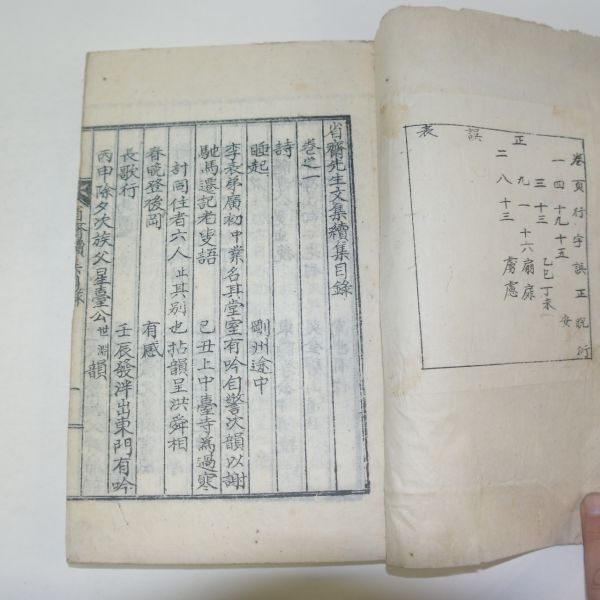 正誤表
卷 頁 行 字 誤 正 脫 衍
一 四 十九 十五 安
三 十三 乙巳 丁未
九 一 十六 扇 扉
二 八 十三 虜 慮
省齋先生文集續集目錄
卷之一
詩
睡起 剛州途中
李表弟廣初中業名其堂室有吟自警次韻以謝
馳馬遷記老叟語 己丑上中臺寺爲過寒
計同住者六人止其別也拈韻呈洪舜相
春晩登後岡 有感
長歌行 壬辰發泮出東門有吟
丙申除夕次族父星臺公世淵韻